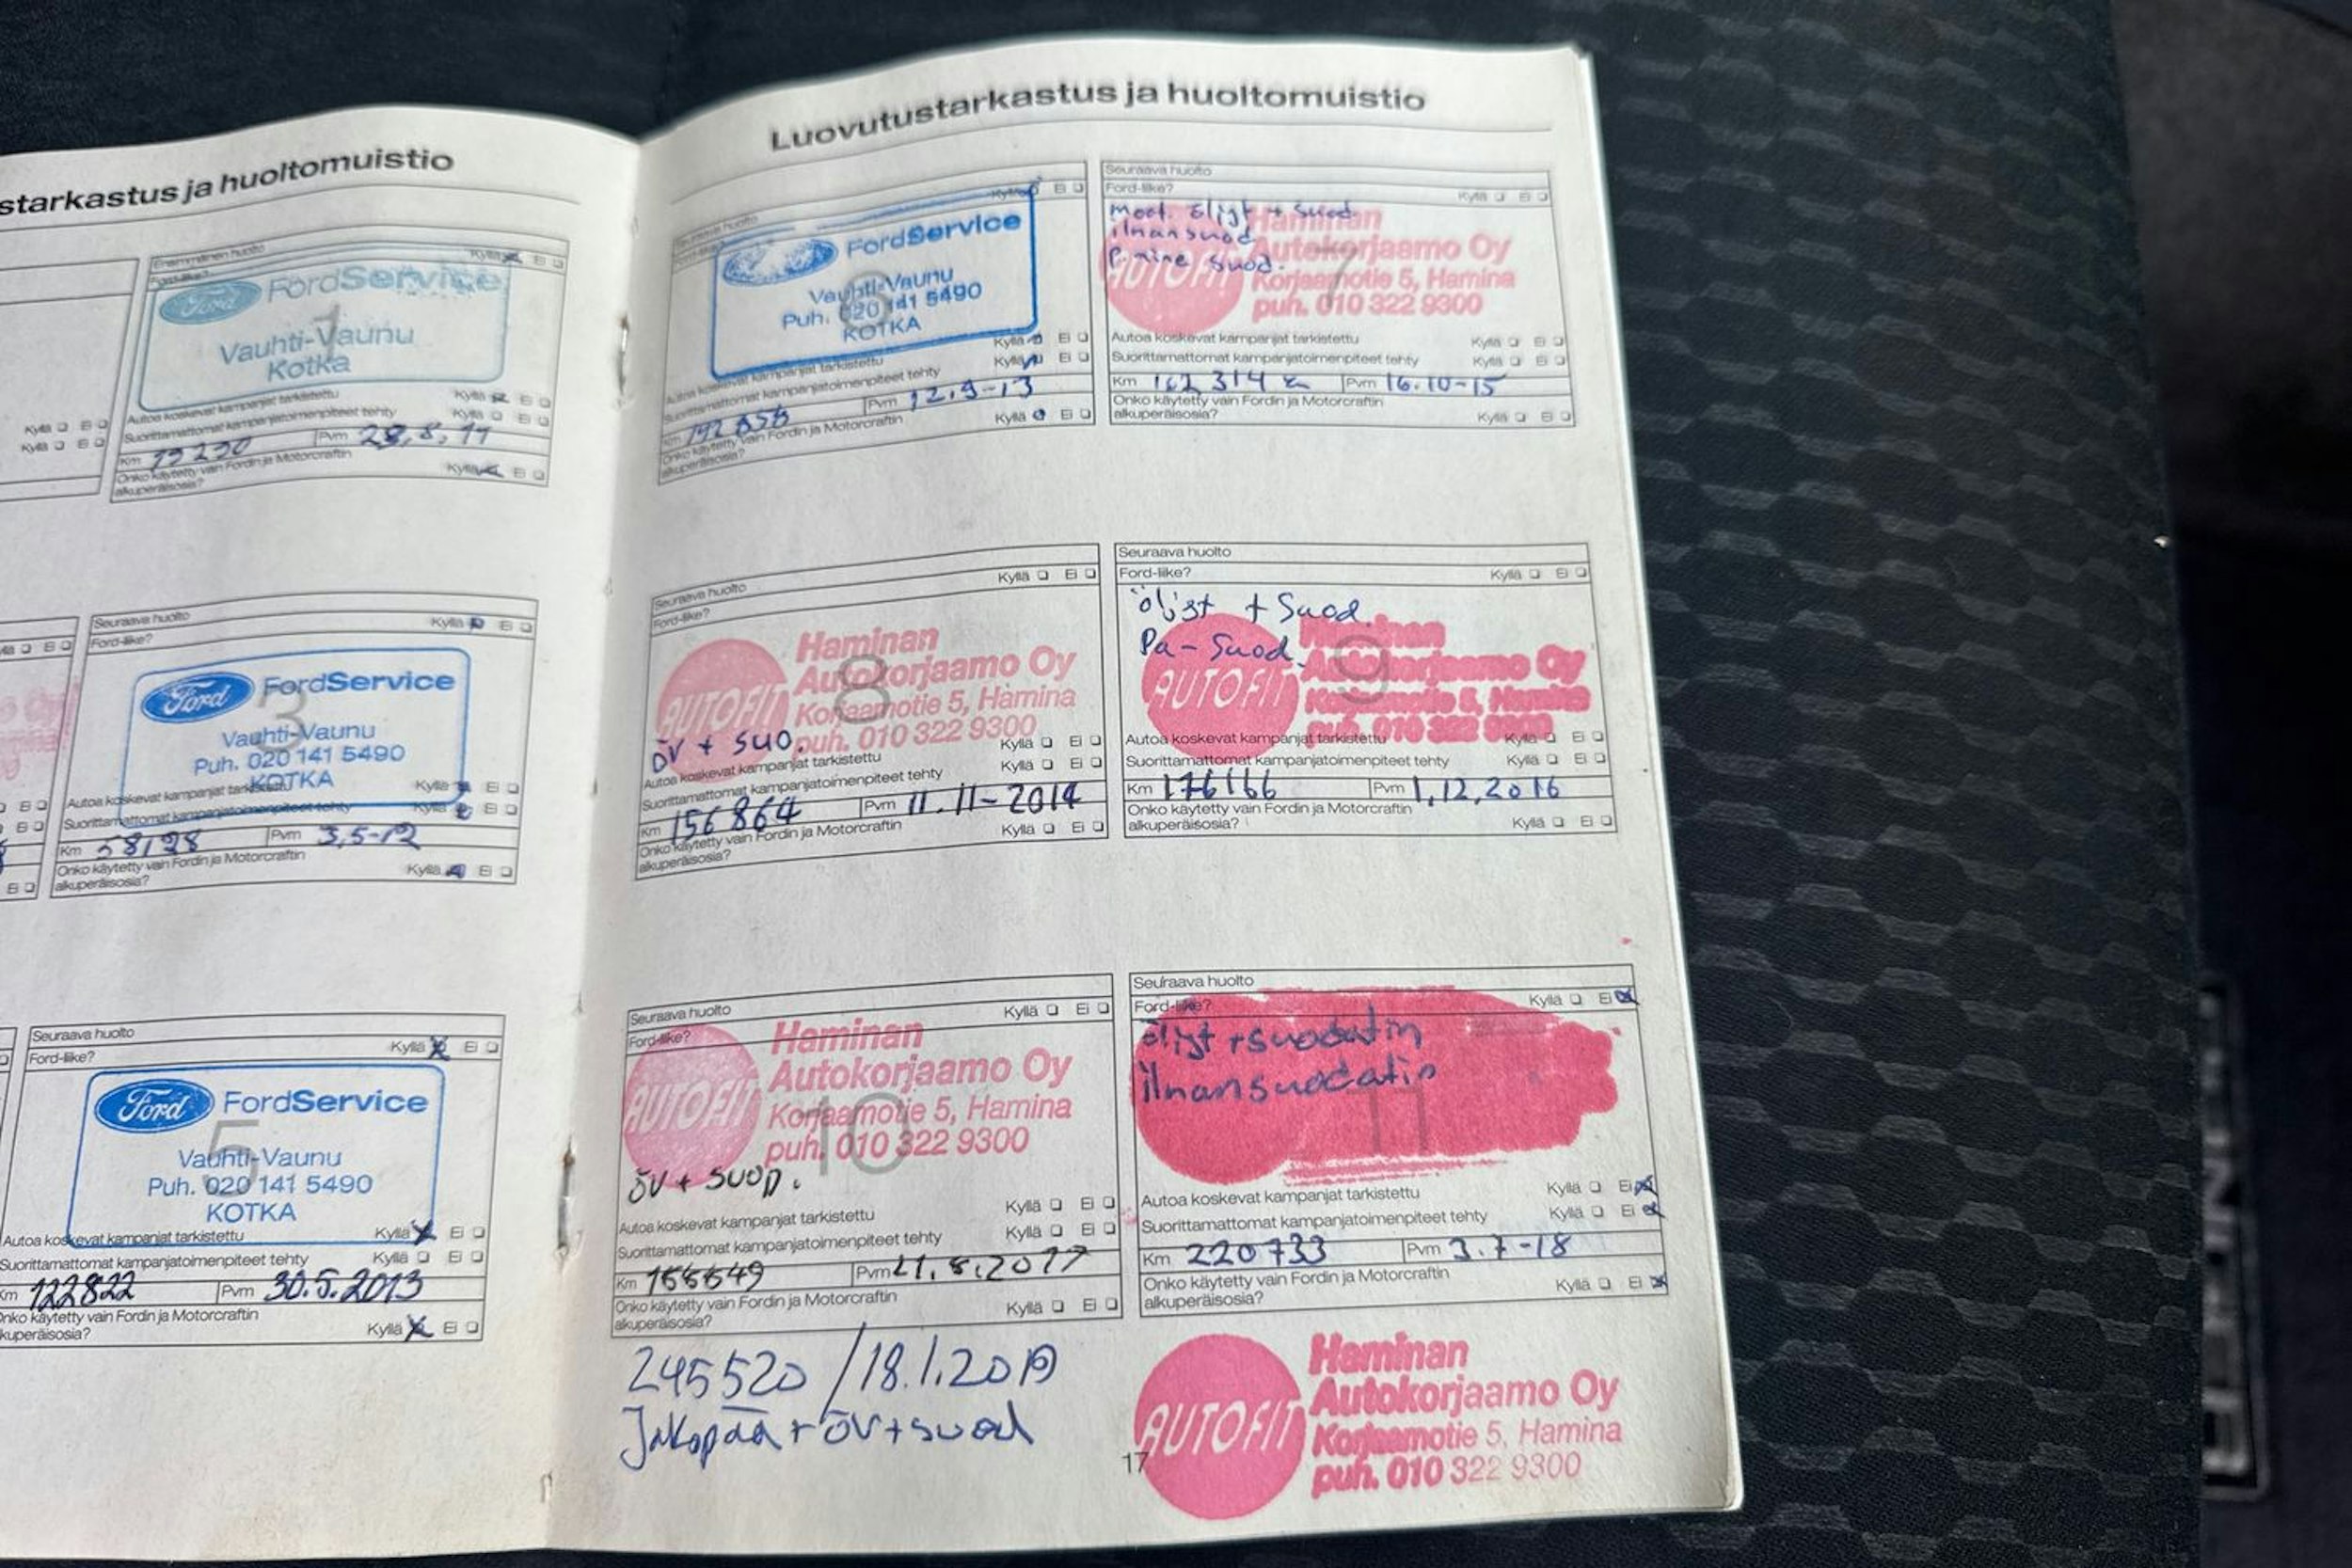 starkastus ja huoltomuistio
Ensimmäinen huolto
Ford-liike?
Kyllä Ei
Ford
FordService
1
Vauhti-Vaunu
Kotka
Autoa koskevat kampanjat tarkistettu Kyllä Ei
Suorittamattomat kampanjatoimenpiteet tehty Kyllä Ei
Km Pvm 28,8,11
Onko käytetty vain Fordin ja Motorcraftin
alkuperäisosia? Kyllä Ei
Kyllä Ei
Kyllä Ei
Seuraava huolto
Ford-liike? Kyllä Ei
Ford
FordService
3
Vauhti-Vaunu
Puh. 020 141 5490
KOTKA
Autoa koskevat kampanjat tarkistettu Kyllä Ei
Suorittamattomat kampanjatoimenpiteet tehty Kyllä Ei
Km 58198 Pvm 3,5-12
Onko käytetty vain Fordin ja Motorcraftin
alkuperäisosia? Kyllä Ei
Seuraava huolto
Ford-liike? Kyllä Ei
Ford
FordService
5
Vauhti-Vaunu
Puh. 020 141 5490
KOTKA
Autoa koskevat kampanjat tarkistettu Kyllä Ei
Suorittamattomat kampanjatoimenpiteet tehty Kyllä Ei
Km 122822 Pvm 30.5.2013
Onko käytetty vain Fordin ja Motorcraftin
alkuperäisosia? Kyllä Ei
Luovutustarkastus ja huoltomuistio
Seuraava huolto
Ford-liike? Kyllä Ei
FordService
6
Vauhti-Vaunu
Puh. 020 141 5490
KOTKA
Autoa koskevat kampanjat tarkistettu Kyllä Ei
Suorittamattomat kampanjatoimenpiteet tehty Kyllä Ei
Km Pvm 12.9-13
Onko käytetty vain Fordin ja Motorcraftin
alkuperäisosia? Kyllä Ei
Seuraava huolto
Ford-liike? Kyllä Ei
moot. öljyt + suod.
ilmansuod.
suod.
AUTOFIT
Haminan
Autokorjaamo Oy
Korjaamotie 5, Hamina
puh. 010 322 9300
7
Autoa koskevat kampanjat tarkistettu Kyllä Ei
Suorittamattomat kampanjatoimenpiteet tehty Kyllä Ei
Km 162 314 Pvm 16.10-15
Onko käytetty vain Fordin ja Motorcraftin
alkuperäisosia? Kyllä Ei
Seuraava huolto
Ford-liike? Kyllä Ei
AUTOFIT
Haminan
Autokorjaamo Oy
Korjaamotie 5, Hamina
puh. 010 322 9300
8
öv + suo.
Autoa koskevat kampanjat tarkistettu Kyllä Ei
Suorittamattomat kampanjatoimenpiteet tehty Kyllä Ei
Km 156864 Pvm 11.11-2014
Onko käytetty vain Fordin ja Motorcraftin
alkuperäisosia? Kyllä Ei
Seuraava huolto
Ford-liike? Kyllä Ei
+ Suod.
Pa-Suod.
AUTOFIT
Haminan
Autokorjaamo Oy
Korjaamotie 5, Hamina
puh. 010 322 9300
9
Autoa koskevat kampanjat tarkistettu Kyllä Ei
Suorittamattomat kampanjatoimenpiteet tehty Kyllä Ei
Km 176166 Pvm 1,12,2016
Onko käytetty vain Fordin ja Motorcraftin
alkuperäisosia? Kyllä Ei
Seuraava huolto
Ford-liike? Kyllä Ei
AUTOFIT
Haminan
Autokorjaamo Oy
Korjaamotie 5, Hamina
puh. 010 322 9300
10
öv + suod.
Autoa koskevat kampanjat tarkistettu Kyllä Ei
Suorittamattomat kampanjatoimenpiteet tehty Kyllä Ei
Km Pvm
Onko käytetty vain Fordin ja Motorcraftin
alkuperäisosia? Kyllä Ei
Seuraava huolto
Ford-liike? Kyllä Ei
öljyt + suodatin
ilmansuodatin
11
Autoa koskevat kampanjat tarkistettu Kyllä Ei
Suorittamattomat kampanjatoimenpiteet tehty Kyllä Ei
Km 220733 Pvm 3.7-18
Onko käytetty vain Fordin ja Motorcraftin
alkuperäisosia? Kyllä Ei
245520 / 18.1.2019
Jakopää + öv + suod
AUTOFIT
Haminan
Autokorjaamo Oy
Korjaamotie 5, Hamina
puh. 010 322 9300
17